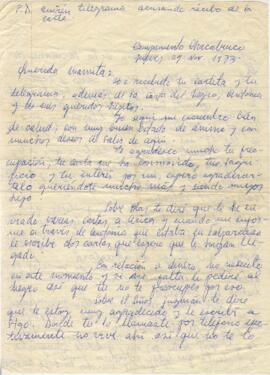 P.D. envien telegrama acusando recibo de la
carta.
Campamento Chacabuco
Jueves 29 Nov 1973
Querida mamita:
He recibido tu cartita y tu
telegrama, además de la carta del Negro,
y los más queridos
Yo aquí me encuentro bien
de salud, con muy buen estado de ánimo y con
muchos deseos de salir de aquí.
Te agradezco mucho tu preo-
cupación, tu carta me ha conmovido, tu sacri-
ficio y tu interés por mí espero agradecer-
telo queriéndote mucho más y siendo mejor
hijo.
Sobre te diré que le he en-
viado varias cartas a y cuando me ente-
ré a través de que estaba en
le escribí dos cartas que espero que le hayan lle-
gado.
En relación a dinero, no necesito
en este momento y si me falta le pediré al
Negro así que tú no te preocupes por eso.
Sobre el señor te diré
que le estoy muy agradecido y le escribí a
Donde tú lo llamaste por teléfono efec-
tivamente no vive ahí así que no te lo